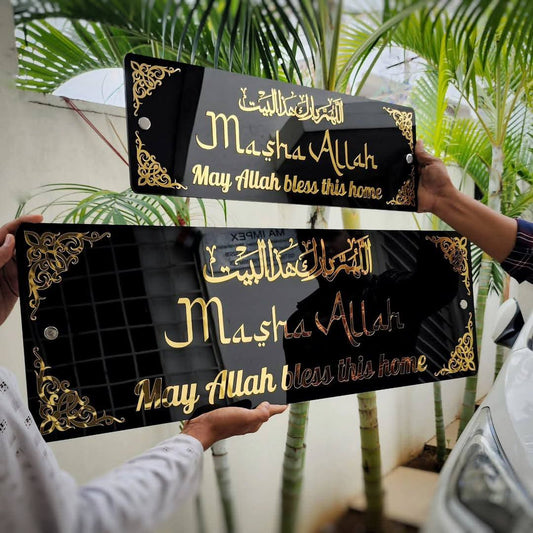 اللهم بارك هذا البيت
Masha Allah
May Allah bless this home
MA IMPEX
اللهم بارك هذا البيت
Masha Allah
May Allah bless this home